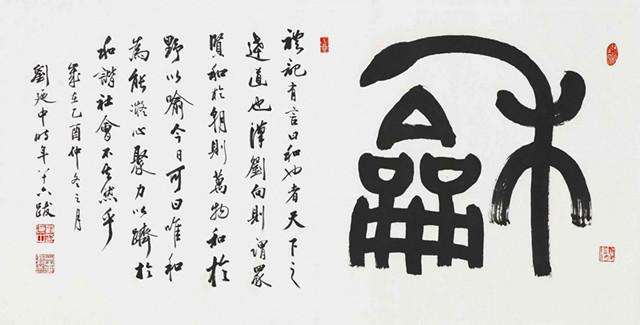 龢
禮記有言曰和也者天下之
達道也漢劉向則謂眾
賢和於朝則萬物和於
野以喻今日可曰唯和
為能凝心聚力以躋於
和諧社會不其然乎
歲在乙酉仲冬之月
劉迺中時年八十六跋